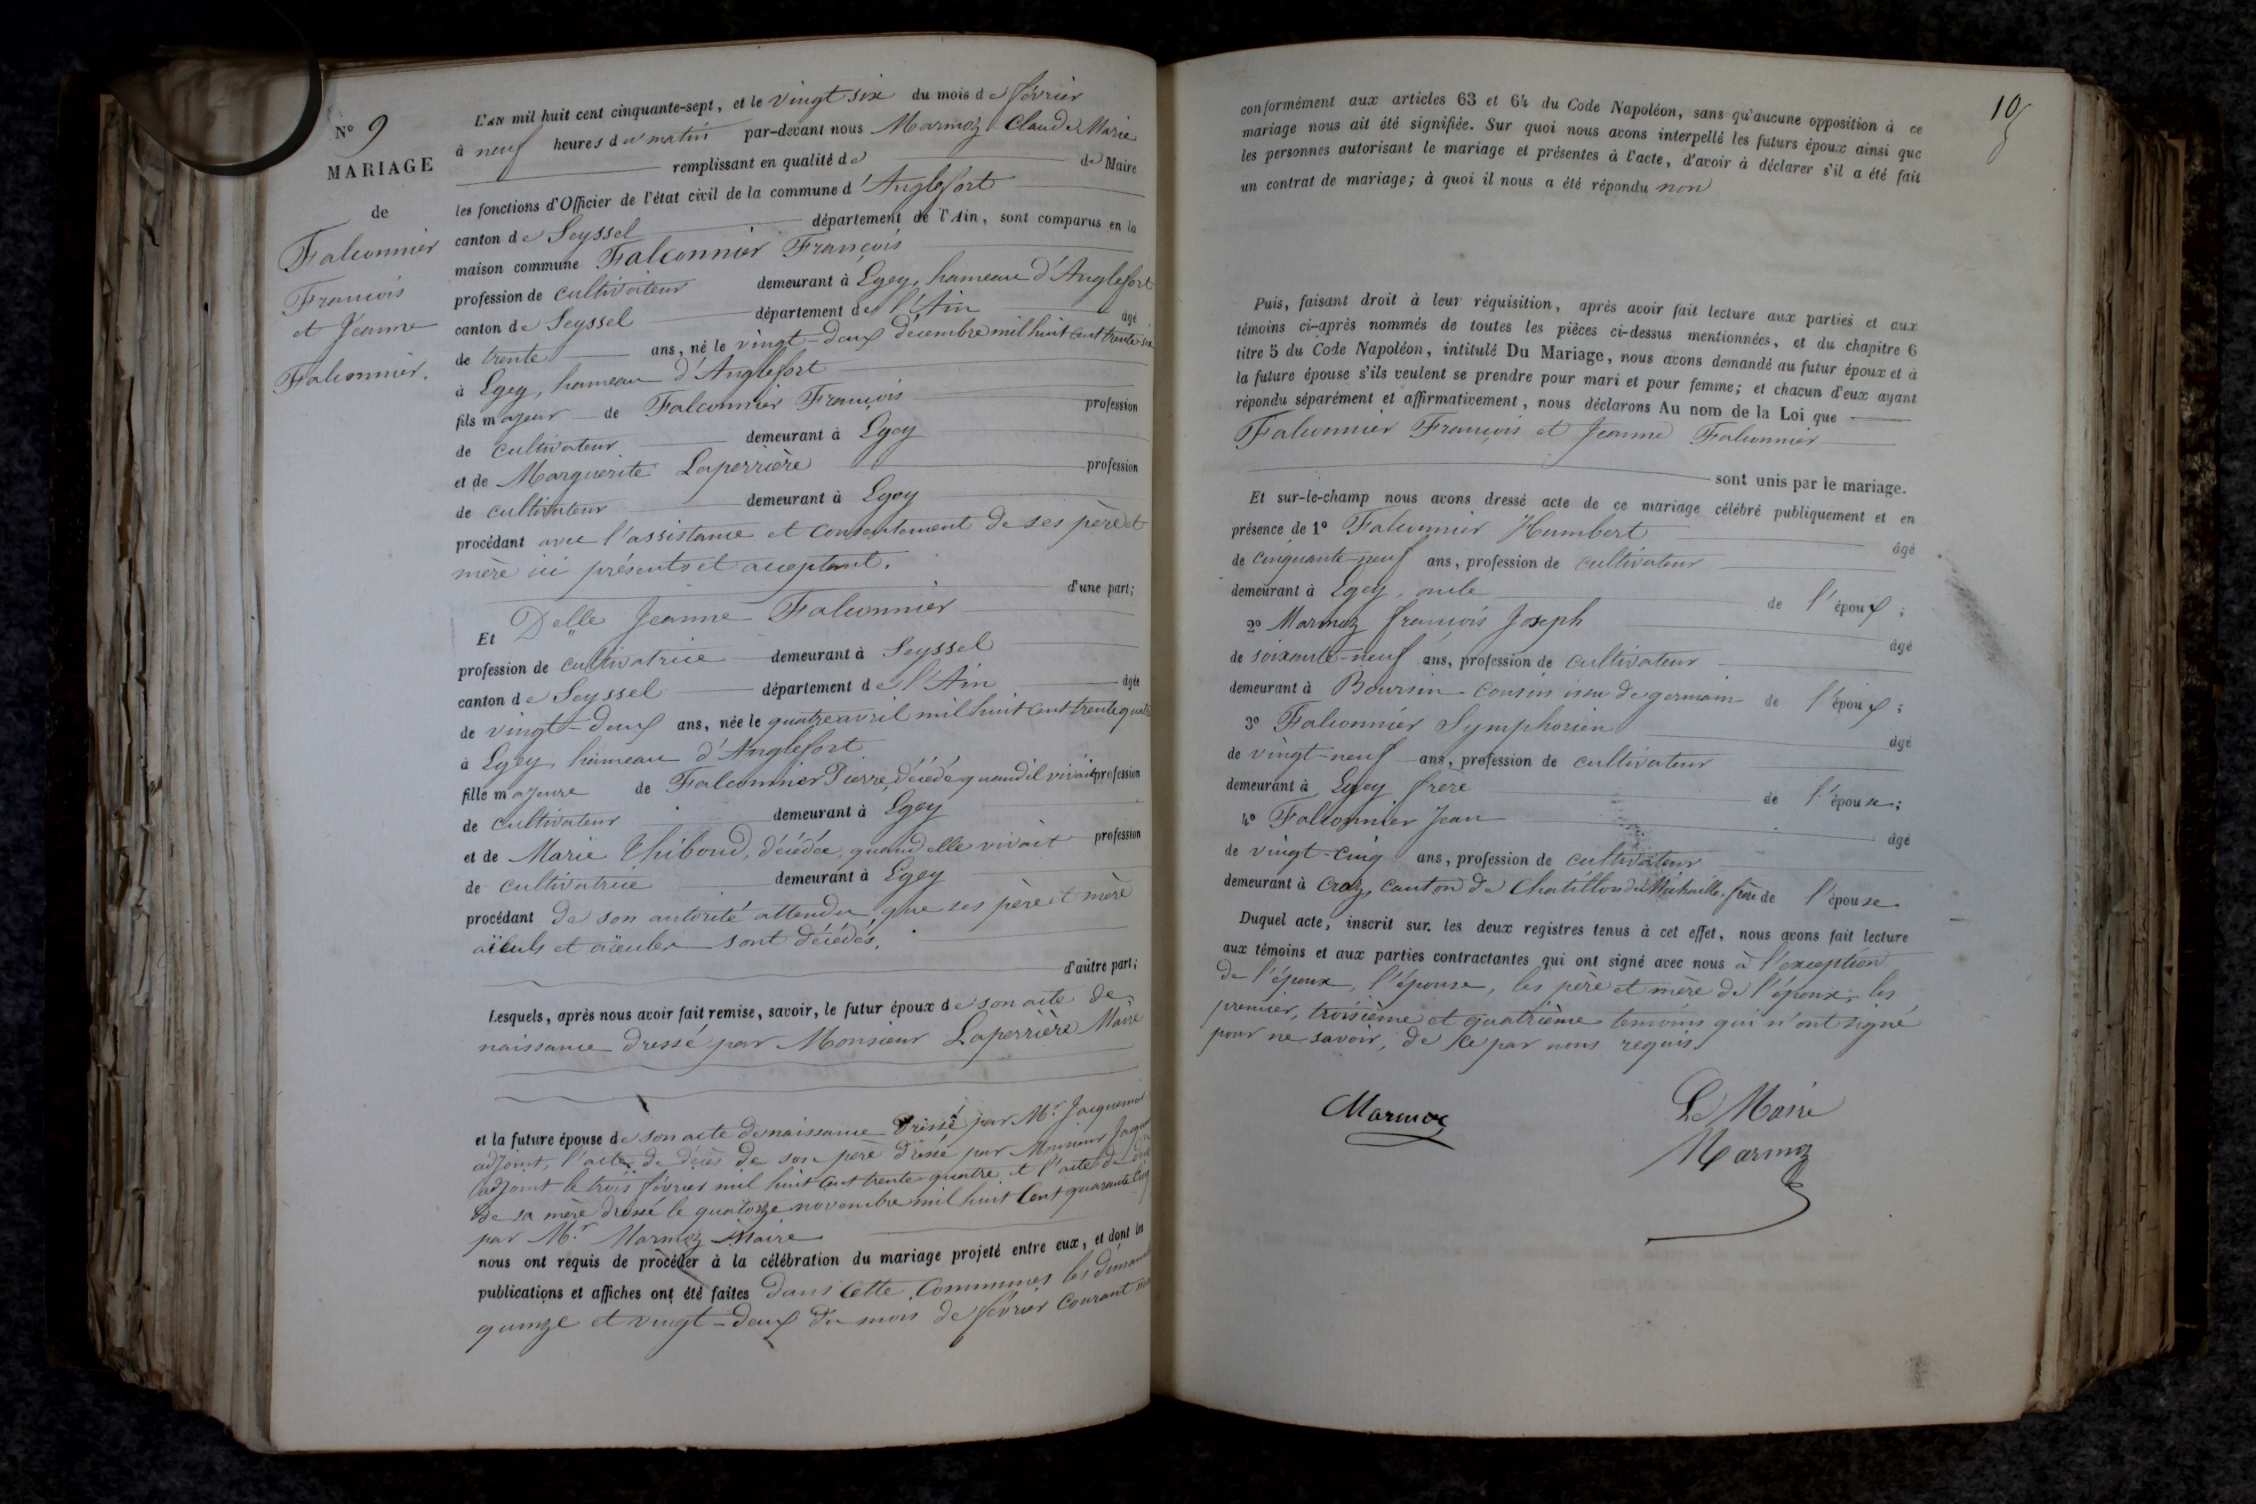 N° 9
MARIAGE
de
Falconnier
François
et Jeanne
Falconnier.
L'an mil huit cent cinquante-sept, et le vingt six du mois de février
à neuf heures du matin par-devant nous Marmoz Claude Marie
remplissant en qualité de de Maire
les fonctions d'Officier de l'état civil de la commune d'Anglefort
canton de Seyssel département de l'Ain, sont comparus en la
maison commune Falconnier François
profession de cultivateur demeurant à Egey, hameau d'Anglefort
canton de Seyssel département de l'Ain âgé
de trente ans, né le vingt-deux décembre mil huit cent trente six
à Egey, hameau d'Anglefort
fils majeur de Falconnier François profession
de cultivateur demeurant à Egey
et de Marguerite Laperrière profession
de cultivateur demeurant à Egey
procédant avec l'assistance et consentement de ses père et
mère ici présents et acceptant.
d'une part;
Et Delle Jeanne Falconnier
profession de cultivatrice demeurant à Seyssel
canton de Seyssel département de l'Ain âgée
de vingt-deux ans, née le quatre avril mil huit cent trente quatre
à Egey, hameau d'Anglefort
fille majeure de Falconnier Pierre, décédé quand il vivait profession
de cultivateur demeurant à Egey
et de Marie Thiboud, décédée, quand elle vivait profession
de cultivatrice demeurant à Egey
procédant de son autorité attendu que ses père et mère
aïeuls et aïeules sont décédés.
d'autre part;
Lesquels, après nous avoir fait remise, savoir, le futur époux de son acte de
naissance dressé par Monsieur Laperrière Maire
et la future épouse de son acte de naissance dressé par Mr Jacquemot
adjoint, l'acte de décès de son père dressé par Monsieur
adjoint le trois février mil huit cent trente quatre et l'acte de décès
de sa mère dressé le quatorze novembre mil huit cent quarante cinq
par Mr Marmoz Maire
nous ont requis de procéder à la célébration du mariage projeté entre eux, et dont les
publications et affiches ont été faites dans cette commune, les dimanches
quinze et vingt-deux du mois de février courant
10
conformément aux articles 63 et 64 du Code Napoléon, sans qu'aucune opposition à ce
mariage nous ait été signifiée. Sur quoi nous avons interpellé les futurs époux ainsi que
les personnes autorisant le mariage et présentes à l'acte, d'avoir à déclarer s'il a été fait
un contrat de mariage; à quoi il nous a été répondu non
Puis, faisant droit à leur réquisition, après avoir fait lecture aux parties et aux
témoins ci-après nommés de toutes les pièces ci-dessus mentionnées, et du chapitre 6
titre 5 du Code Napoléon, intitulé Du Mariage, nous avons demandé au futur époux et à
la future épouse s'ils veulent se prendre pour mari et pour femme; et chacun d'eux ayant
répondu séparément et affirmativement, nous déclarons Au nom de la Loi que
Falconnier François et Jeanne Falconnier
sont unis par le mariage.
Et sur-le-champ nous avons dressé acte de ce mariage célébré publiquement et en
présence de 1° Falconnier Humbert âgé
de cinquante-neuf ans, profession de cultivateur
demeurant à Egey, oncle de l'époux;
2° Marmoz françois Joseph âgé
de soixante-neuf ans, profession de cultivateur
demeurant à Boursin cousin issu de germain de l'époux;
3° Falconnier Symphorien âgé
de vingt-neuf ans, profession de cultivateur
demeurant à Egey frère de l'épouse;
4° Falconnier Jean âgé
de vingt-cinq ans, profession de cultivateur
demeurant à Craz, canton de Chatillon de Michaille, frère de l'épouse
Duquel acte, inscrit sur les deux registres tenus à cet effet, nous avons fait lecture
aux témoins et aux parties contractantes qui ont signé avec nous à l'exception
de l'époux, l'épouse, les père et mère de l'époux, les
premier, troisième et quatrième temoins qui n'ont signé
pour ne savoir, de ce par nous requis.
Marmoz
Le Maire
Marmoz